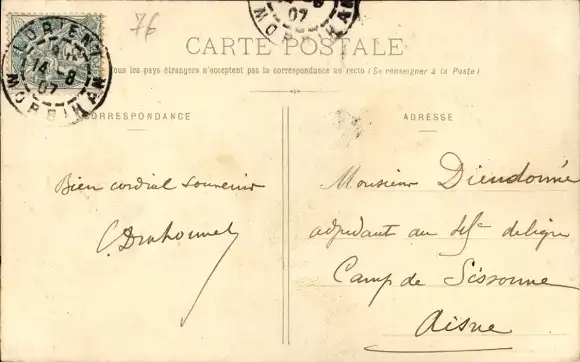 76
LORIENT
14-8
07
MORBIHAN
07
MORBIHAN
CARTE POSTALE
Tous les pays étrangers n'acceptent pas la correspondance au recto (Se renseigner à la Poste)
CORRESPONDANCE
Bien cordial souvenir
ADRESSE
Monsieur Dieudonné
adjudant au 45e de ligne
Camp de Sissonne
Aisne